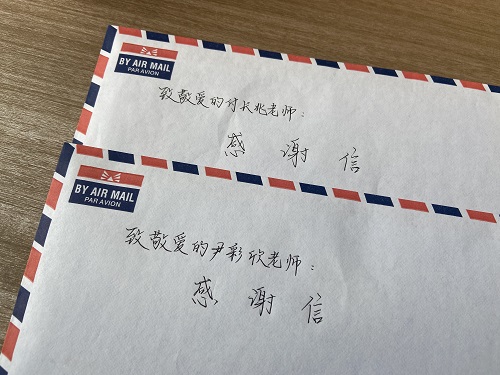 BY AIR MAIL
PAR AVION
致敬爱的付长兆老师:
感谢信
BY AIR MAIL
PAR AVION
致敬爱的尹彩欣老师:
感谢信